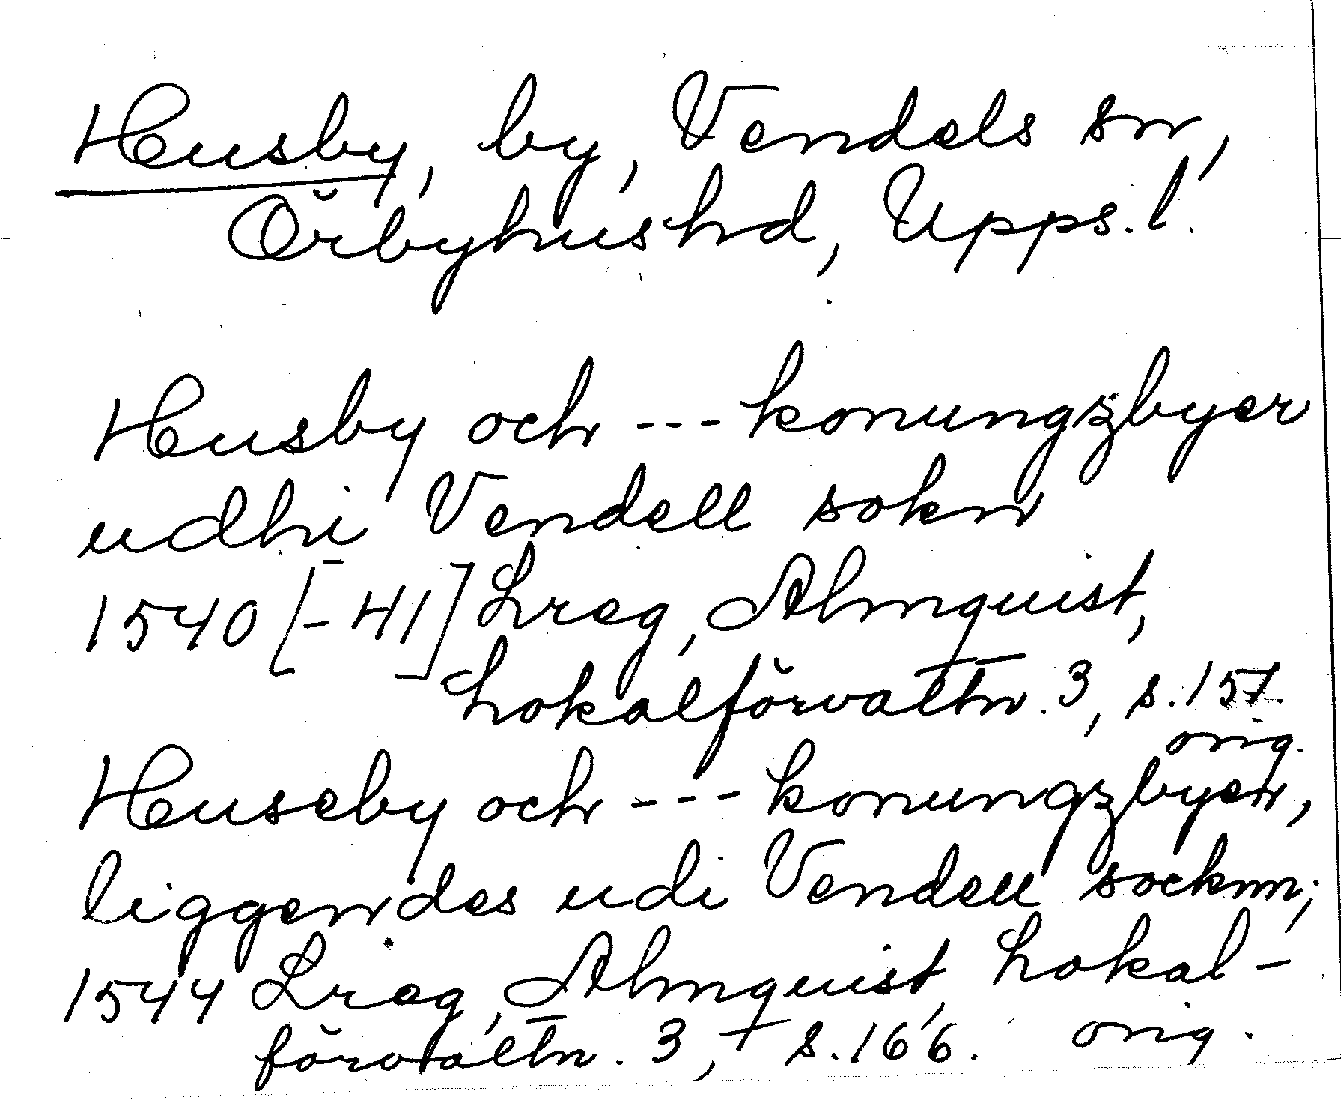 Husby, by, Vendels sn,
Örbyhus hd, Upps. l.
Husby och --- konungzbyer
udhi Vendell sokn
1540 [-41] Lreg, Almquist,
Lokalförvaltn. 3, s. 157.
orig.
Huseby och --- konungzbyer,
liggendes udi Vendell socknn;
1544 Lreg, Almquist, Lokal-
förvaltn. 3, s. 166. orig.